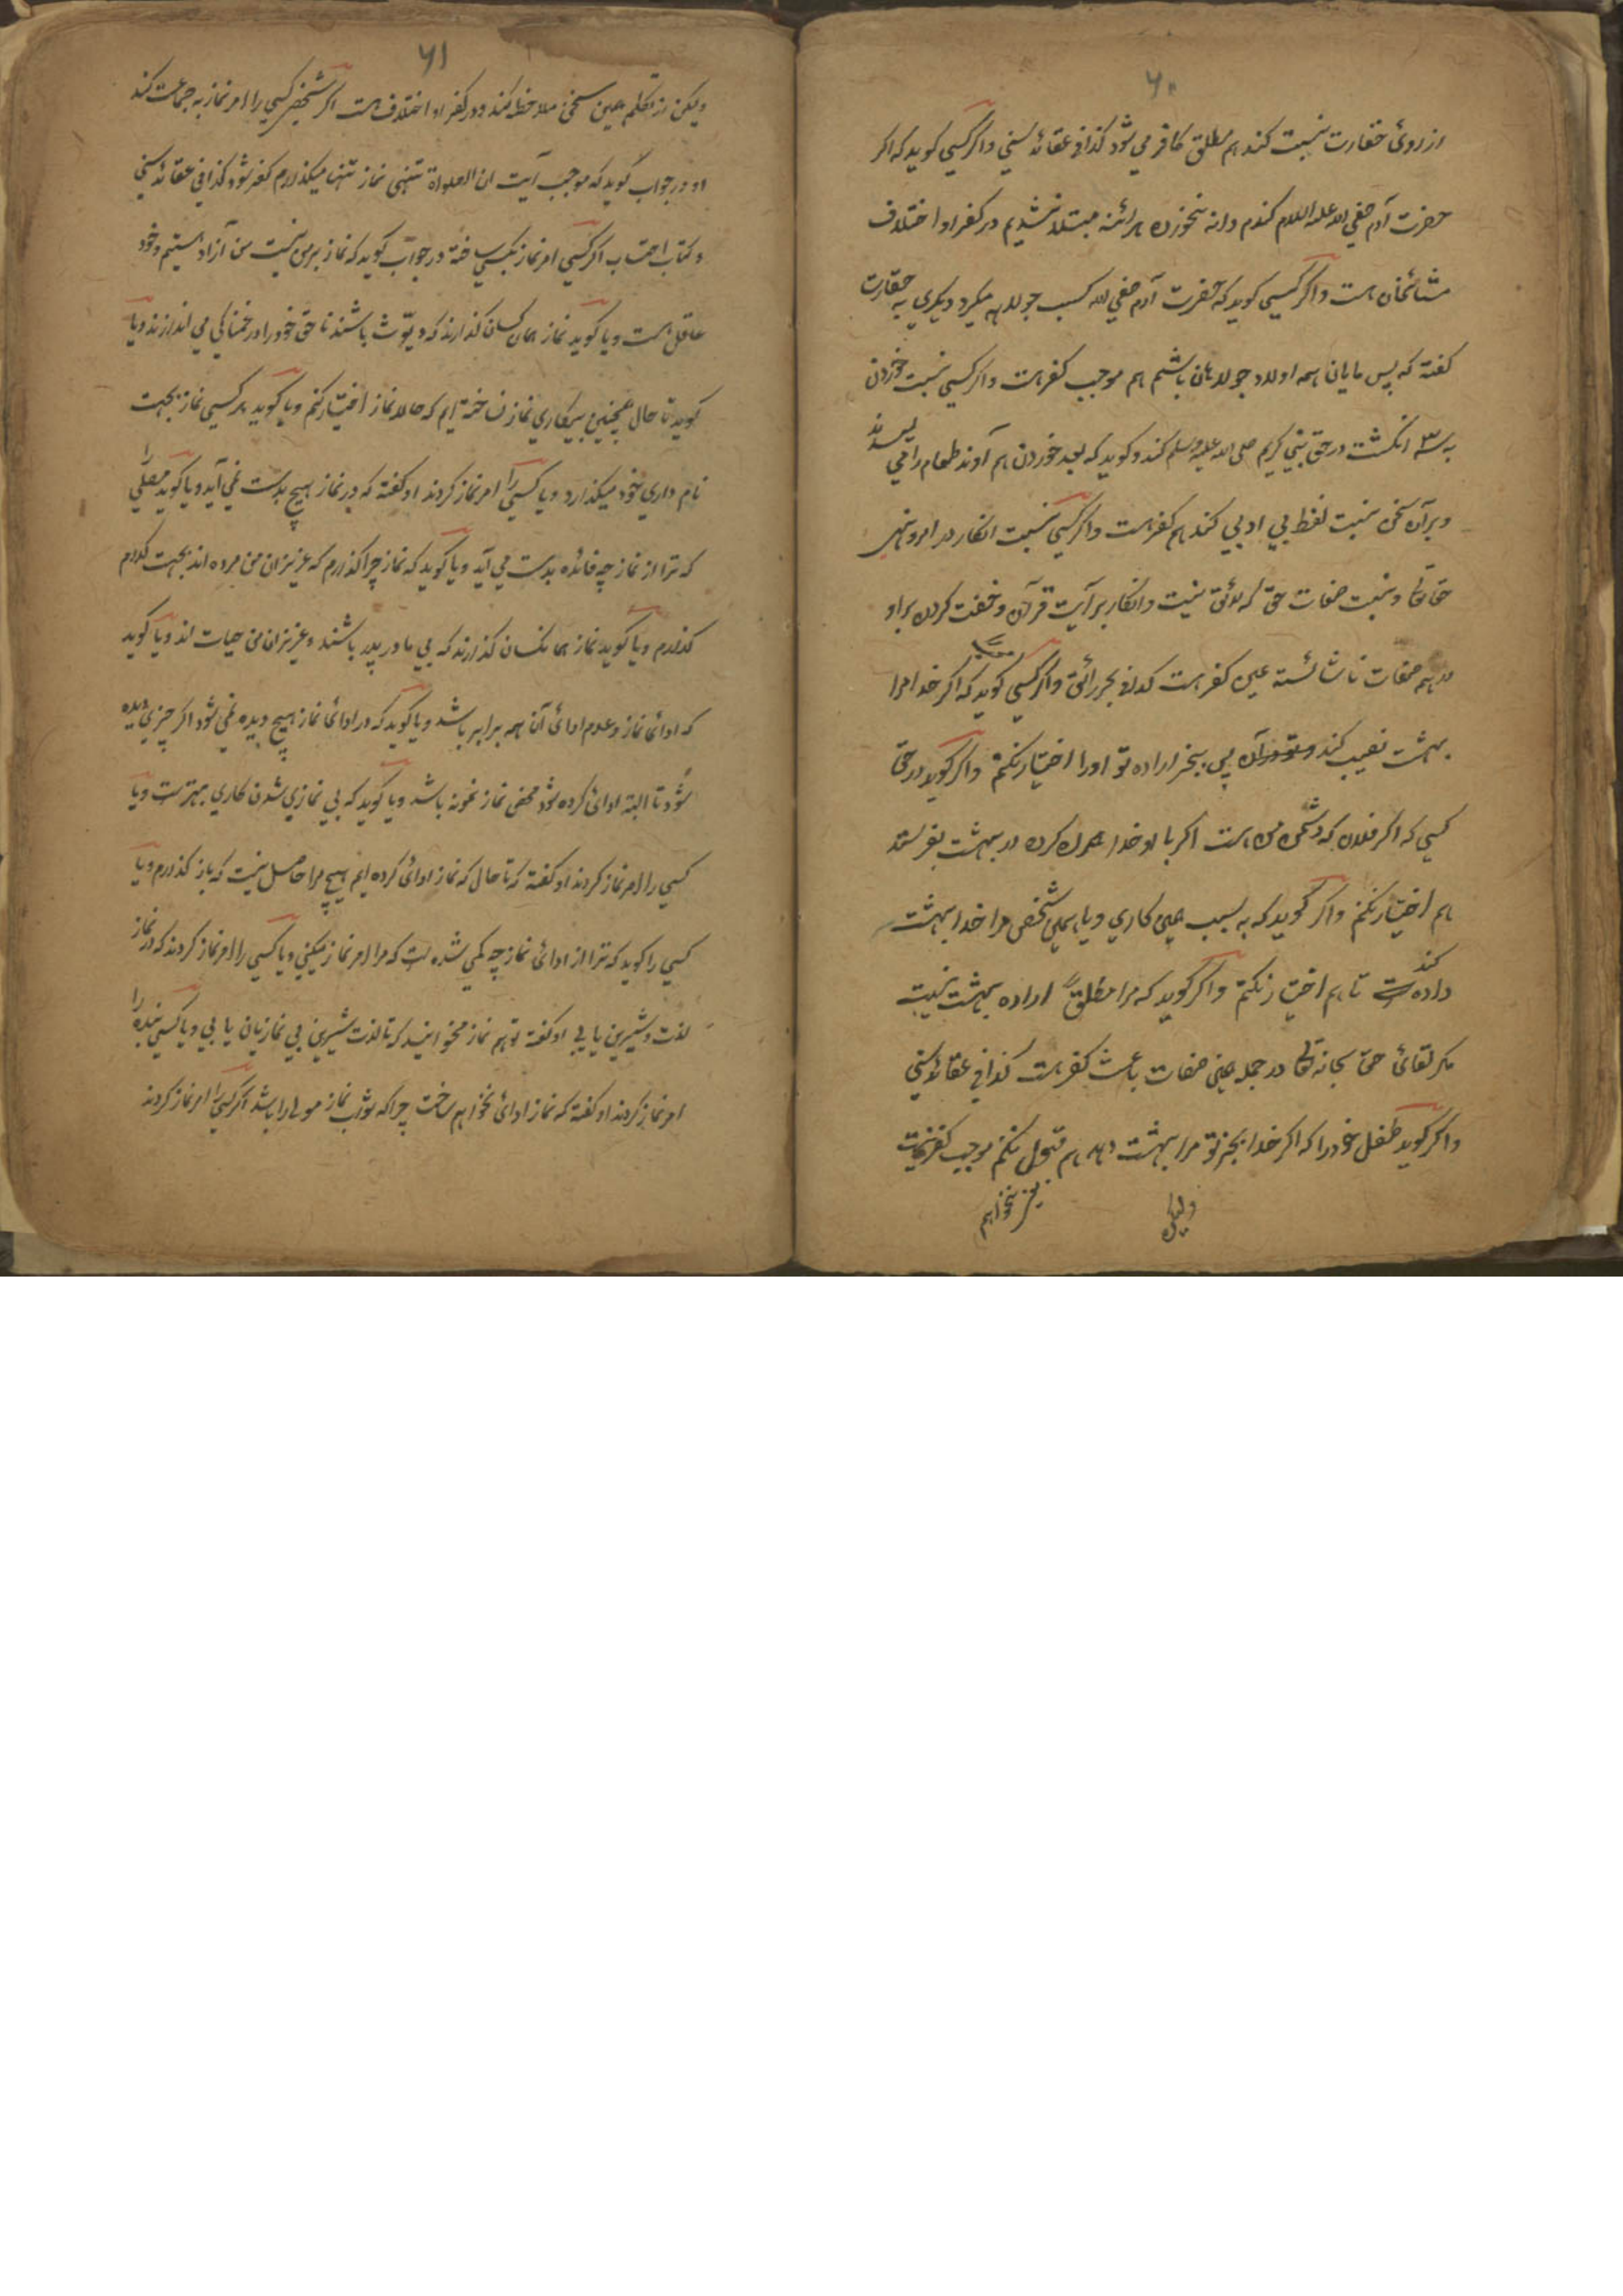 ۶۰
از روئ حقارت نسبت کند هم مطلق کافر می شود کذا فی عقائد سنی و اگر کسی کوید که اکر
حضرت آدم صفی الله علیه السلام کندم دانه نخوردہ هرائنه مبتلا نشدیم در کفر او اختلاف
مشائخان است و اگر کسی کوید که حضرت آدم صفی الله کسب جولاهه میکرد دیکری به حقارت
کفته که پس مایان همه اولاد جولاهان باشم هم موجب کفر است و اکر کسی نسبت خوردن
به سه انکشت در حق نبی کریم صلی الله علیه وسلم کند و کوید که بعد خوردن هم آوند طعام را می لیسدند
و بر آن سخن نسبت لفظ بی ادبی کند هم کفر است و اکر کسی نسبت انکار در امر و نهی
حق تعالی و نسبت صفات حق که لائق نیست و انکار بر آیت قرآن و خفت کردن بر او
در همه صفات ناشائسته عین کفر است کذا فی بحر رائق و اکر کسی کوید که اکر خدا مرا
بهشت نصیب کند آن پس بجز اراده تو او را اختیار نکنم و اکر کوید در حق
کسی که اکر فلان که دشمن من است اکر با او خدا همراه کرده در بهشت بفرستد
هم اختیار نکنم و اکر کوید که به سبب همین کاری و یا همین شخص مرا خدا بهشت
داده کند تا هم اختیار نکنم و اکر کوید که مرا مطلقاً اراده بهشت نیست
مکر لقائ حق سبحانه تعالی در جمله همین صفات باعث کفر است کذا فی عقائد سنی
و اکر کوید طفل خود را که اکر خدا بجز تو مرا بهشت دهد هم قبول نکنم موجب کفر نیست
بجز نخواهم
ولیکن
۶۱
ولیکن از تکلم همین سخن ملاحظه کند و در کفر او اختلاف است اکر شخص کسی را امر نماز به جماعت کند
او در جواب کوید که موجب آیت ان الصلواة تنهی نماز تنها میکذارم کفر شود کذا فی عقائد سنی
و کتاب احتساب اکر کسی امر نماز بکسی ساخته در جواب کوید که نماز بر من نیست من آزاد هستیم و خود
عاقل است و یا کوید نماز همان کسان کذارند که دیوث باشند تا حق خود را در خمناکی می اندازند و یا
کوید تا حال همچنین بیکاری نماز نساخته ایم که حالا نماز اختیار کنم و یا کوید هر کسی نماز بجهت
نام داری خود میکذارد و یا کسی را امر نماز کردند او کفته که در نماز هیچ بدست نمی آید و یا کوید مصلی را
که ترا از نماز چه فائده بدست می آید و یا کوید که نماز چرا کذارم که عزیزان من مرده اند بجهت کدام
کذارم و یا کوید نماز همانکسان کذارند که بی مادر پدر باشند و عزیزان من حیات اند و یا کوید
که ادائ نماز و عدم ادائ آن همه برابر باشد و یا کوید که در ادائ نماز هیچ دیده نمی شود اکر چیزی دیده
شود تا البته ادائ کرده شود محض نماز نمونه باشد و یا کوید که بی نمازی شدن کاری بهتر است و یا
کسی را امر نماز کردند او کفته که تا حال که نماز ادائ کرده ایم هیچ مرا حاصل نیست که باز کذارم و یا
کسی را کوید که ترا از ادائ نماز چه کمی شده است که مرا امر نماز میکنی و یا کسی را امر نماز کردند که در نماز
لذت و شیرین یابی او کفته تو هم نماز مخوانید که تا لذت شیرین بی نمازیان یابی و یا کسی بنده را
امر نماز کردند او کفته که نماز ادائ نخواهم ساخت چرا که ثواب نماز مولی را باشد اکر کسی را امر نماز کردند